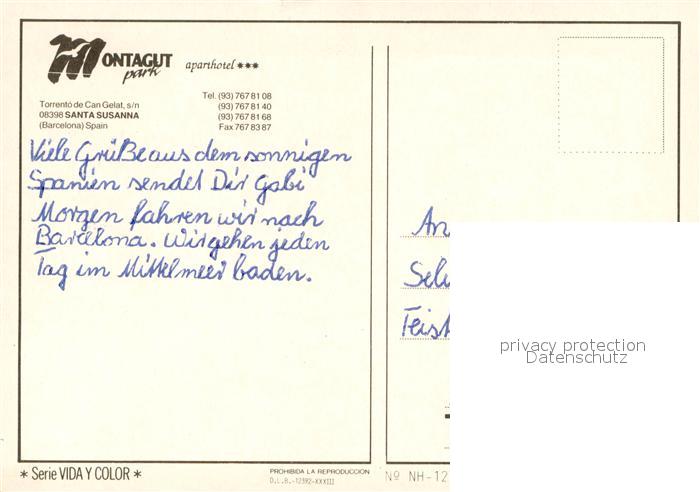 MONTAGUT
park
aparthotel ***
Torrentó de Can Gelat, s/n
08398 SANTA SUSANNA
(Barcelona) Spain
Tel. (93) 767 81 08
(93) 767 81 40
(93) 767 81 68
Fax 767 83 87
Viele Grüße aus dem sonnigen
Spanien sendet Dir Gabi
Morgen fahren wir nach
Barcelona. Wir gehen jeden
Tag im Mittelmeer baden.
An
privacy protection
Datenschutz
* Serie VIDA Y COLOR *
PROHIBIDA LA REPRODUCCION
D.L.B.-12392-XXXIII
Nº NH-12